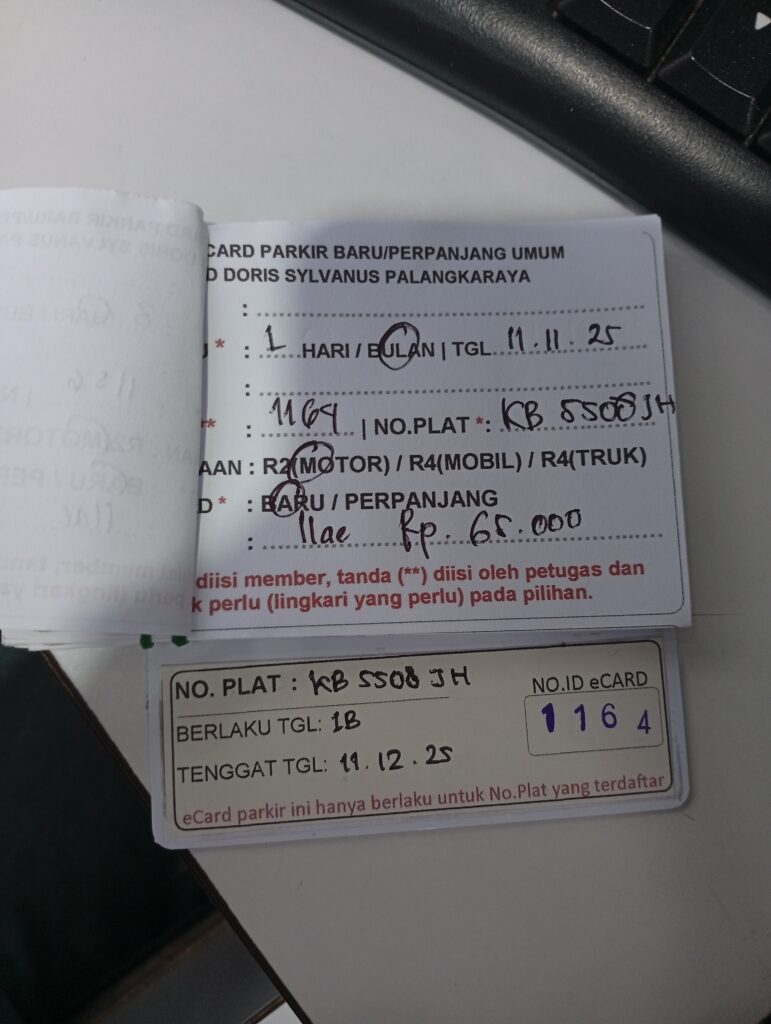 CARD PARKIR BARU/PERPANJANG UMUM
D DORIS SYLVANUS PALANGKARAYA
: ........
* : 1 HARI / BULAN | TGL 11.11.25
: ........
* : 1164 | NO.PLAT *: KB 5508 JH
AAN : R2(MOTOR) / R4(MOBIL) / R4(TRUK)
D * : BARU / PERPANJANG
: Rp. 65.000
diisi member, tanda (**) diisi oleh petugas dan
k perlu (lingkari yang perlu) pada pilihan.
NO. PLAT : KB 5508 JH
NO.ID eCARD
1164
BERLAKU TGL: 1B
TENGGAT TGL: 11.12.25
eCard parkir ini hanya berlaku untuk No.Plat yang terdaftar